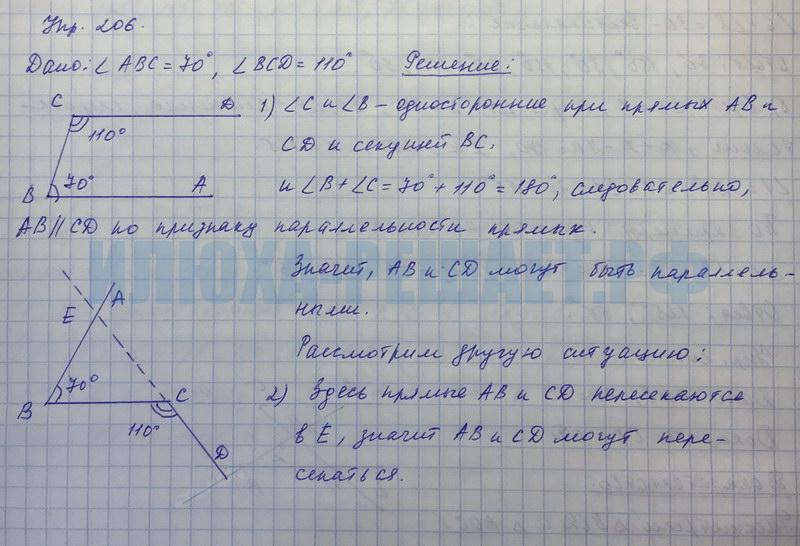 Упр. 206.
Дано: ∠ ABC = 70°, ∠ BCD = 110° Решение:
C D
110°
B 70° A
1) ∠C и ∠B – односторонние при прямых AB и
CD и секущей BC,
и ∠B + ∠C = 70° + 110° = 180°, следовательно,
AB || CD по признаку параллельности прямых.
Значит, AB и CD могут быть параллель-
ными.
Рассмотрим другую ситуацию:
A
E
B 70° C
110°
D
2) Здесь прямые AB и CD пересекаются
в E, значит AB и CD могут пере-
секаться.